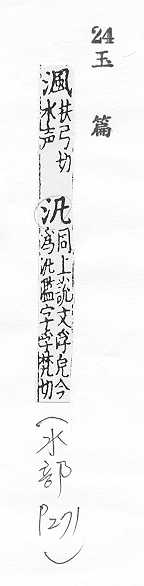 24
玉篇
渢
扶弓切
水声
汎
同上說文浮皃今
為汎濫字孚梵切
(水部 P271)